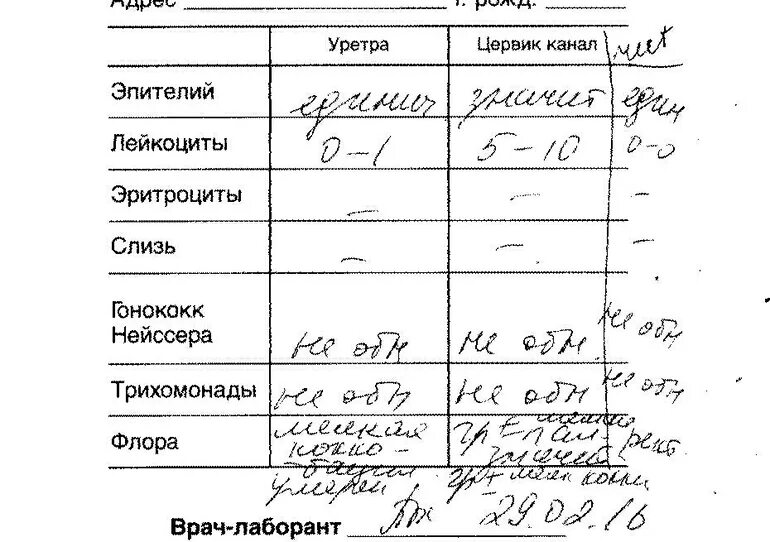 Адрес г. рожд.
Уретра Цервик канал
Эпителий единич значит един
Лейкоциты 0-1 5-10 0-0
Эритроциты – – –
Слизь – – –
Гонококк
Нейссера не обн не обн. не обн
Трихомонады не обн не обн не обн
мелкая гр±
Флора кокко-
значит
умерен гр± мелк кокки
Врач-лаборант 29.02.16